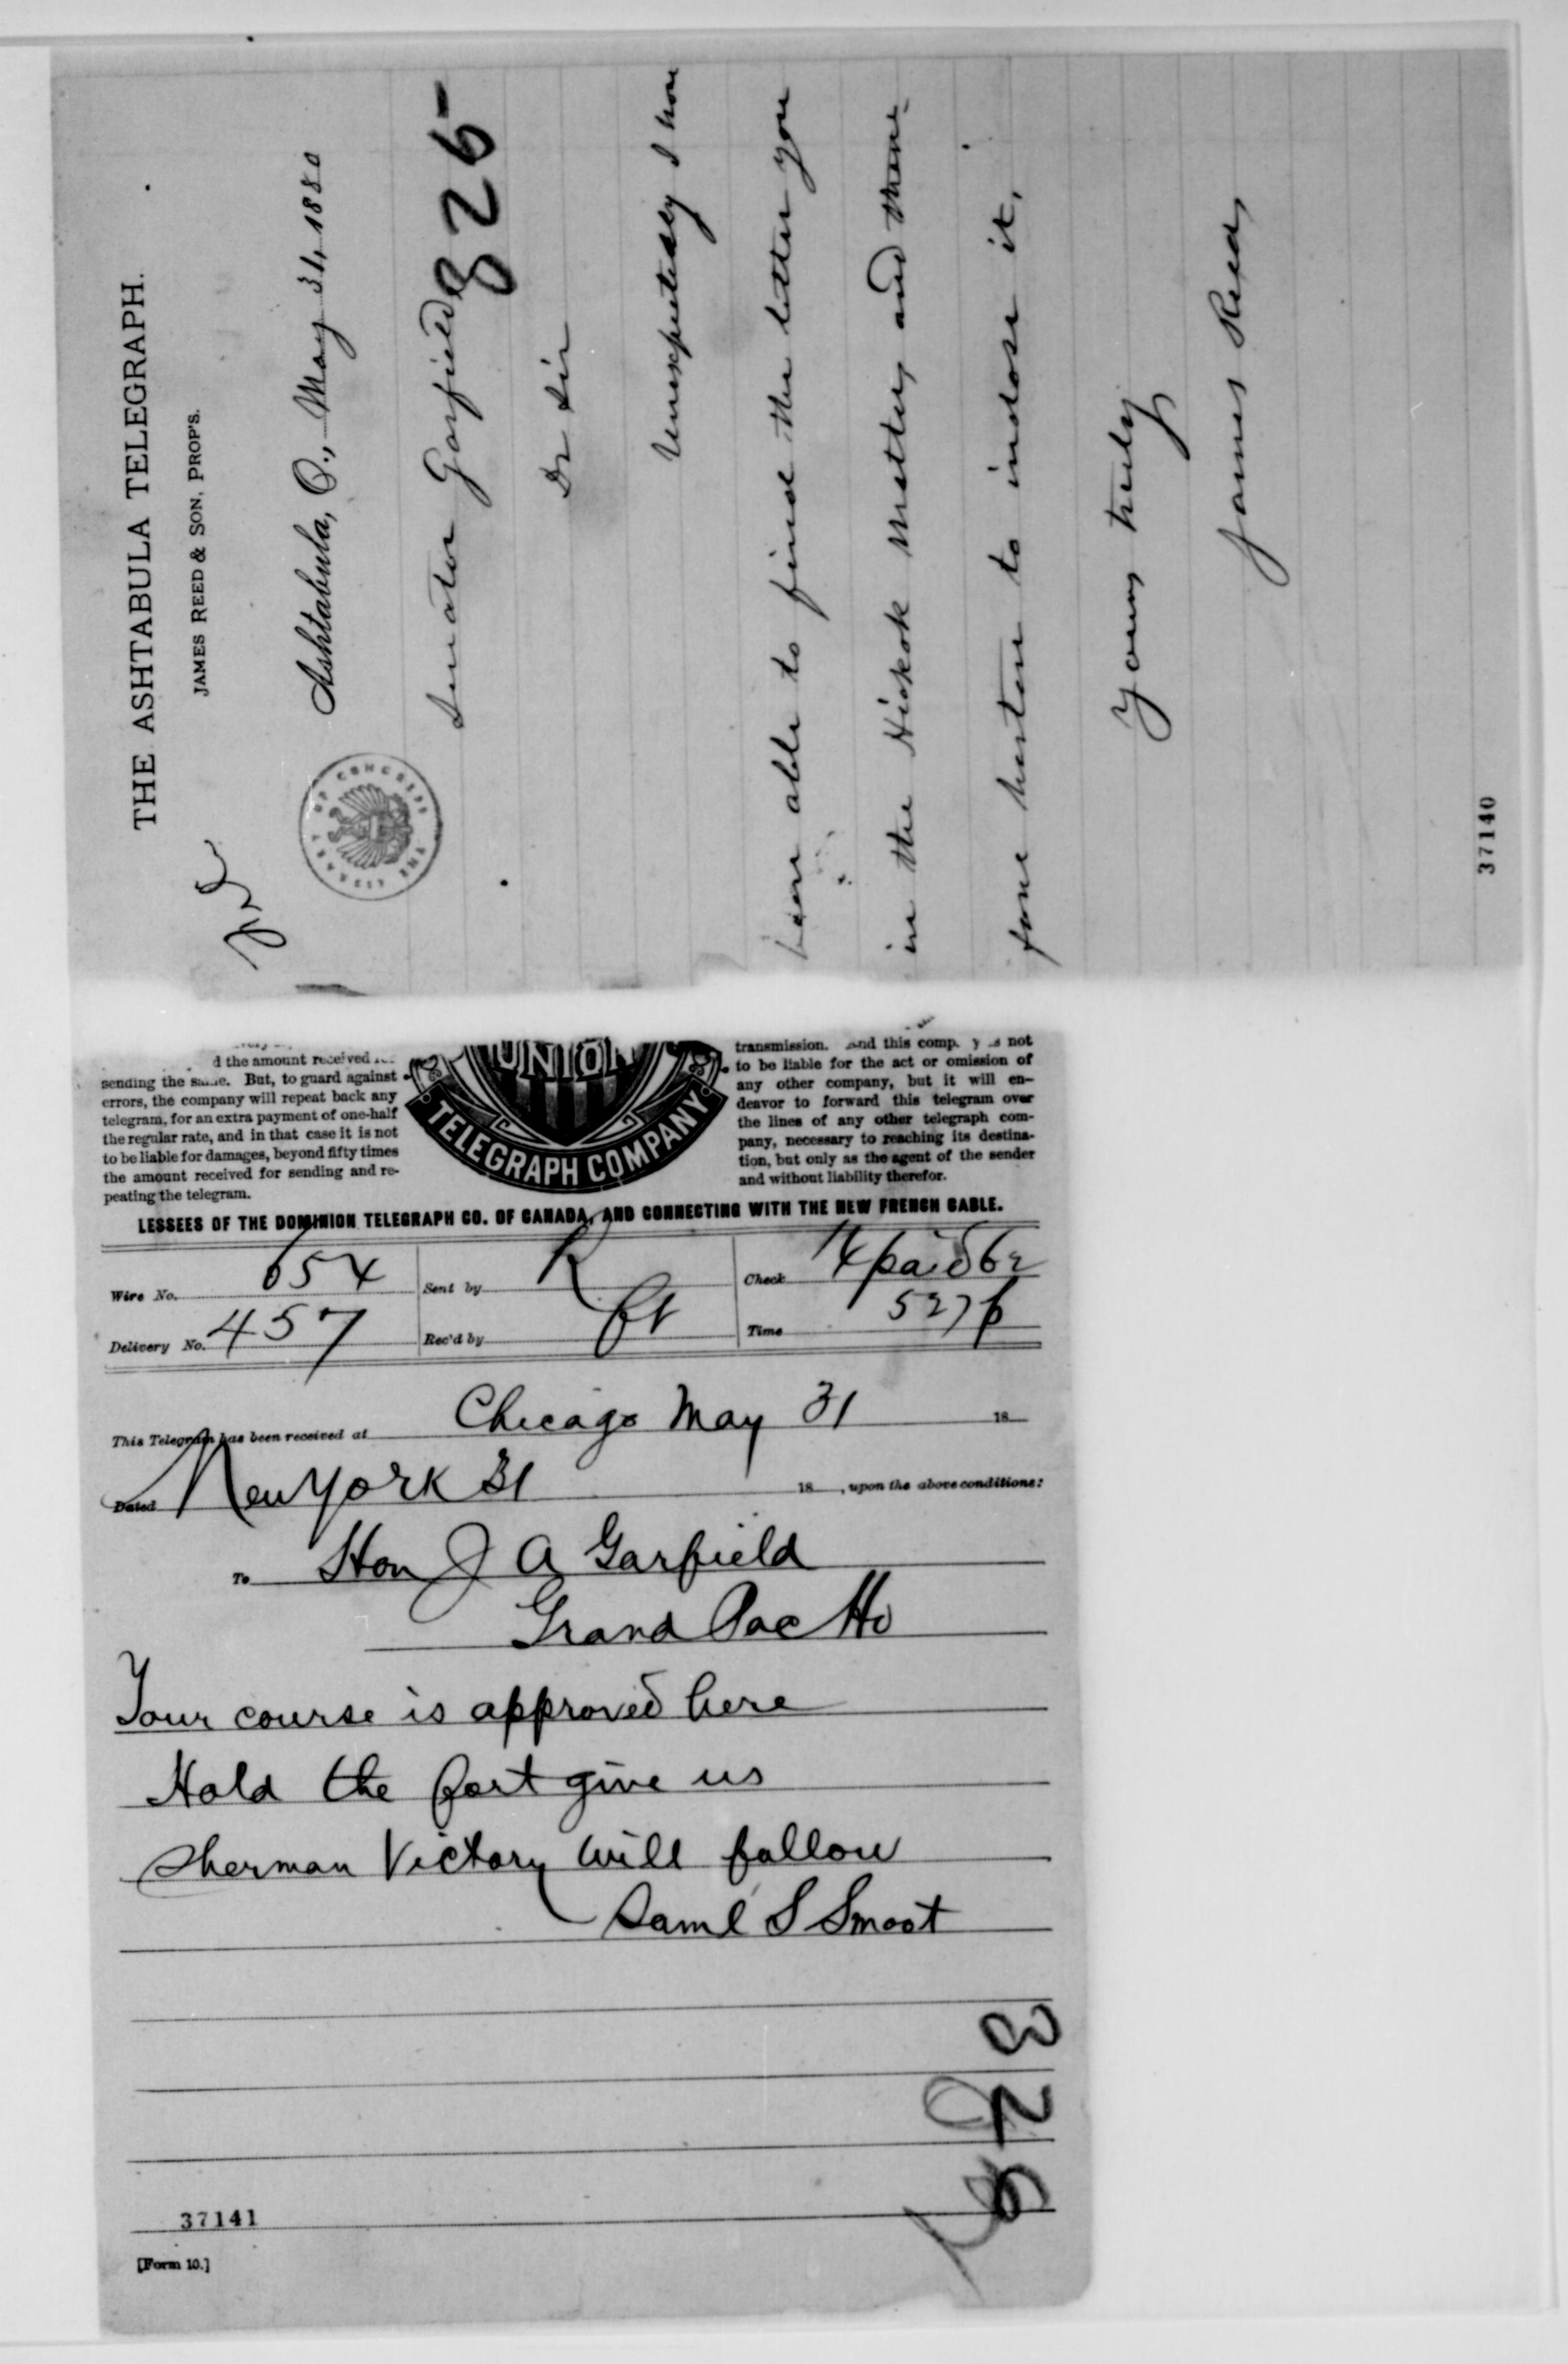 THE ASHTABULA TELEGRAPH.
JAMES REED & SON, PROP'S.
Ashtabula, O., May 31, 1880
Senator Garfield
825
Dr Sir
Unexpectedly I have
been able to find the letter you
in the Hickok matter, and there-
fore hasten to inclose it.
Yours truly
James Reed
THE LIBRARY OF CONGRESS
37140
d the amount received
sending the same. But, to guard against
errors, the company will repeat back any
telegram, for an extra payment of one-half
the regular rate, and in that case it is not
to be liable for damages, beyond fifty times
the amount received for sending and re-
peating the telegram.
UNION
TELEGRAPH COMPANY
transmission. And this comp y is not
to be liable for the act or omission of
any other company, but it will en-
deavor to forward this telegram over
the lines of any other telegraph com-
pany, necessary to reaching its destina-
tion, but only as the agent of the sender
and without liability therefor.
LESSEES OF THE DOMINION TELEGRAPH CO. OF CANADA, AND CONNECTING WITH THE NEW FRENCH CABLE.
Wire No. 654 Sent by R Check 14 paid 62
Delivery No. 457 Rec'd by Time 527 p
This Telegram has been received at Chicago May 31 18
Dated New York 31 18 , upon the above conditions:
To Hon J A Garfield
Grand Pac Ho
Your course is approved here
Hold the fort give us
Sherman Victory will follow
Saml S Smoot
37141
[Form 10.]